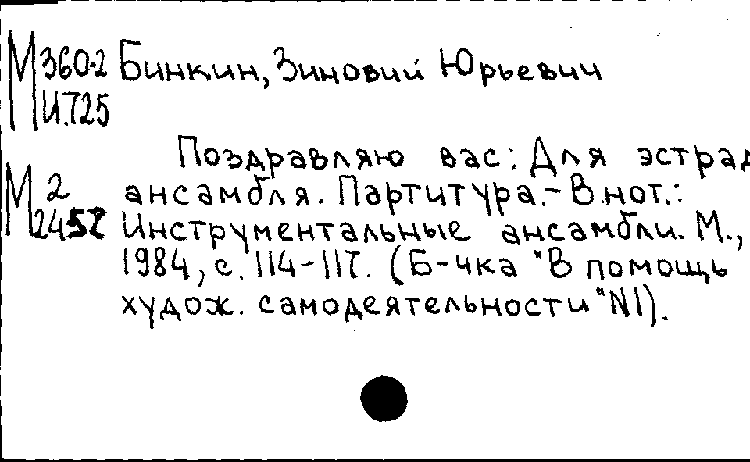 М360.2 Бинкин, Зиновий Юрьевич
И.725
Поздравляю вас: Для эстрад
М2 ансамбля. Партитура.- В нот.:
2457 Инструментальные ансамбли. М.,
1984, с. 114-117. (Б-чка "В помощь
худож. самодеятельности "N1).